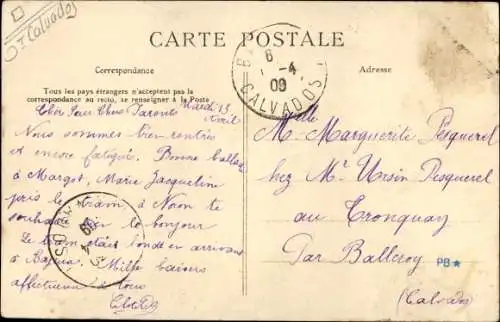 Calvados
CARTE POSTALE
Correspondance
Adresse
Tous les pays étrangers n'acceptent pas la
correspondance au recto, se renseigner à la Poste
6 -4
09
CALVADOS
Mardi 13
Avril
Nous sommes bien rentrés
et encore fatigué. Bonne
à Margot, Marie Jacqueline
pris le tram à
le bonjour
Le tram était en arrivant
à Mille baisers
affectueux à tous
Mlle
Marguerite Pesquerel
chez Mr Ursin Pesquerel
au Tronquay
Par Balleroy
(Calvados)
PB★
09